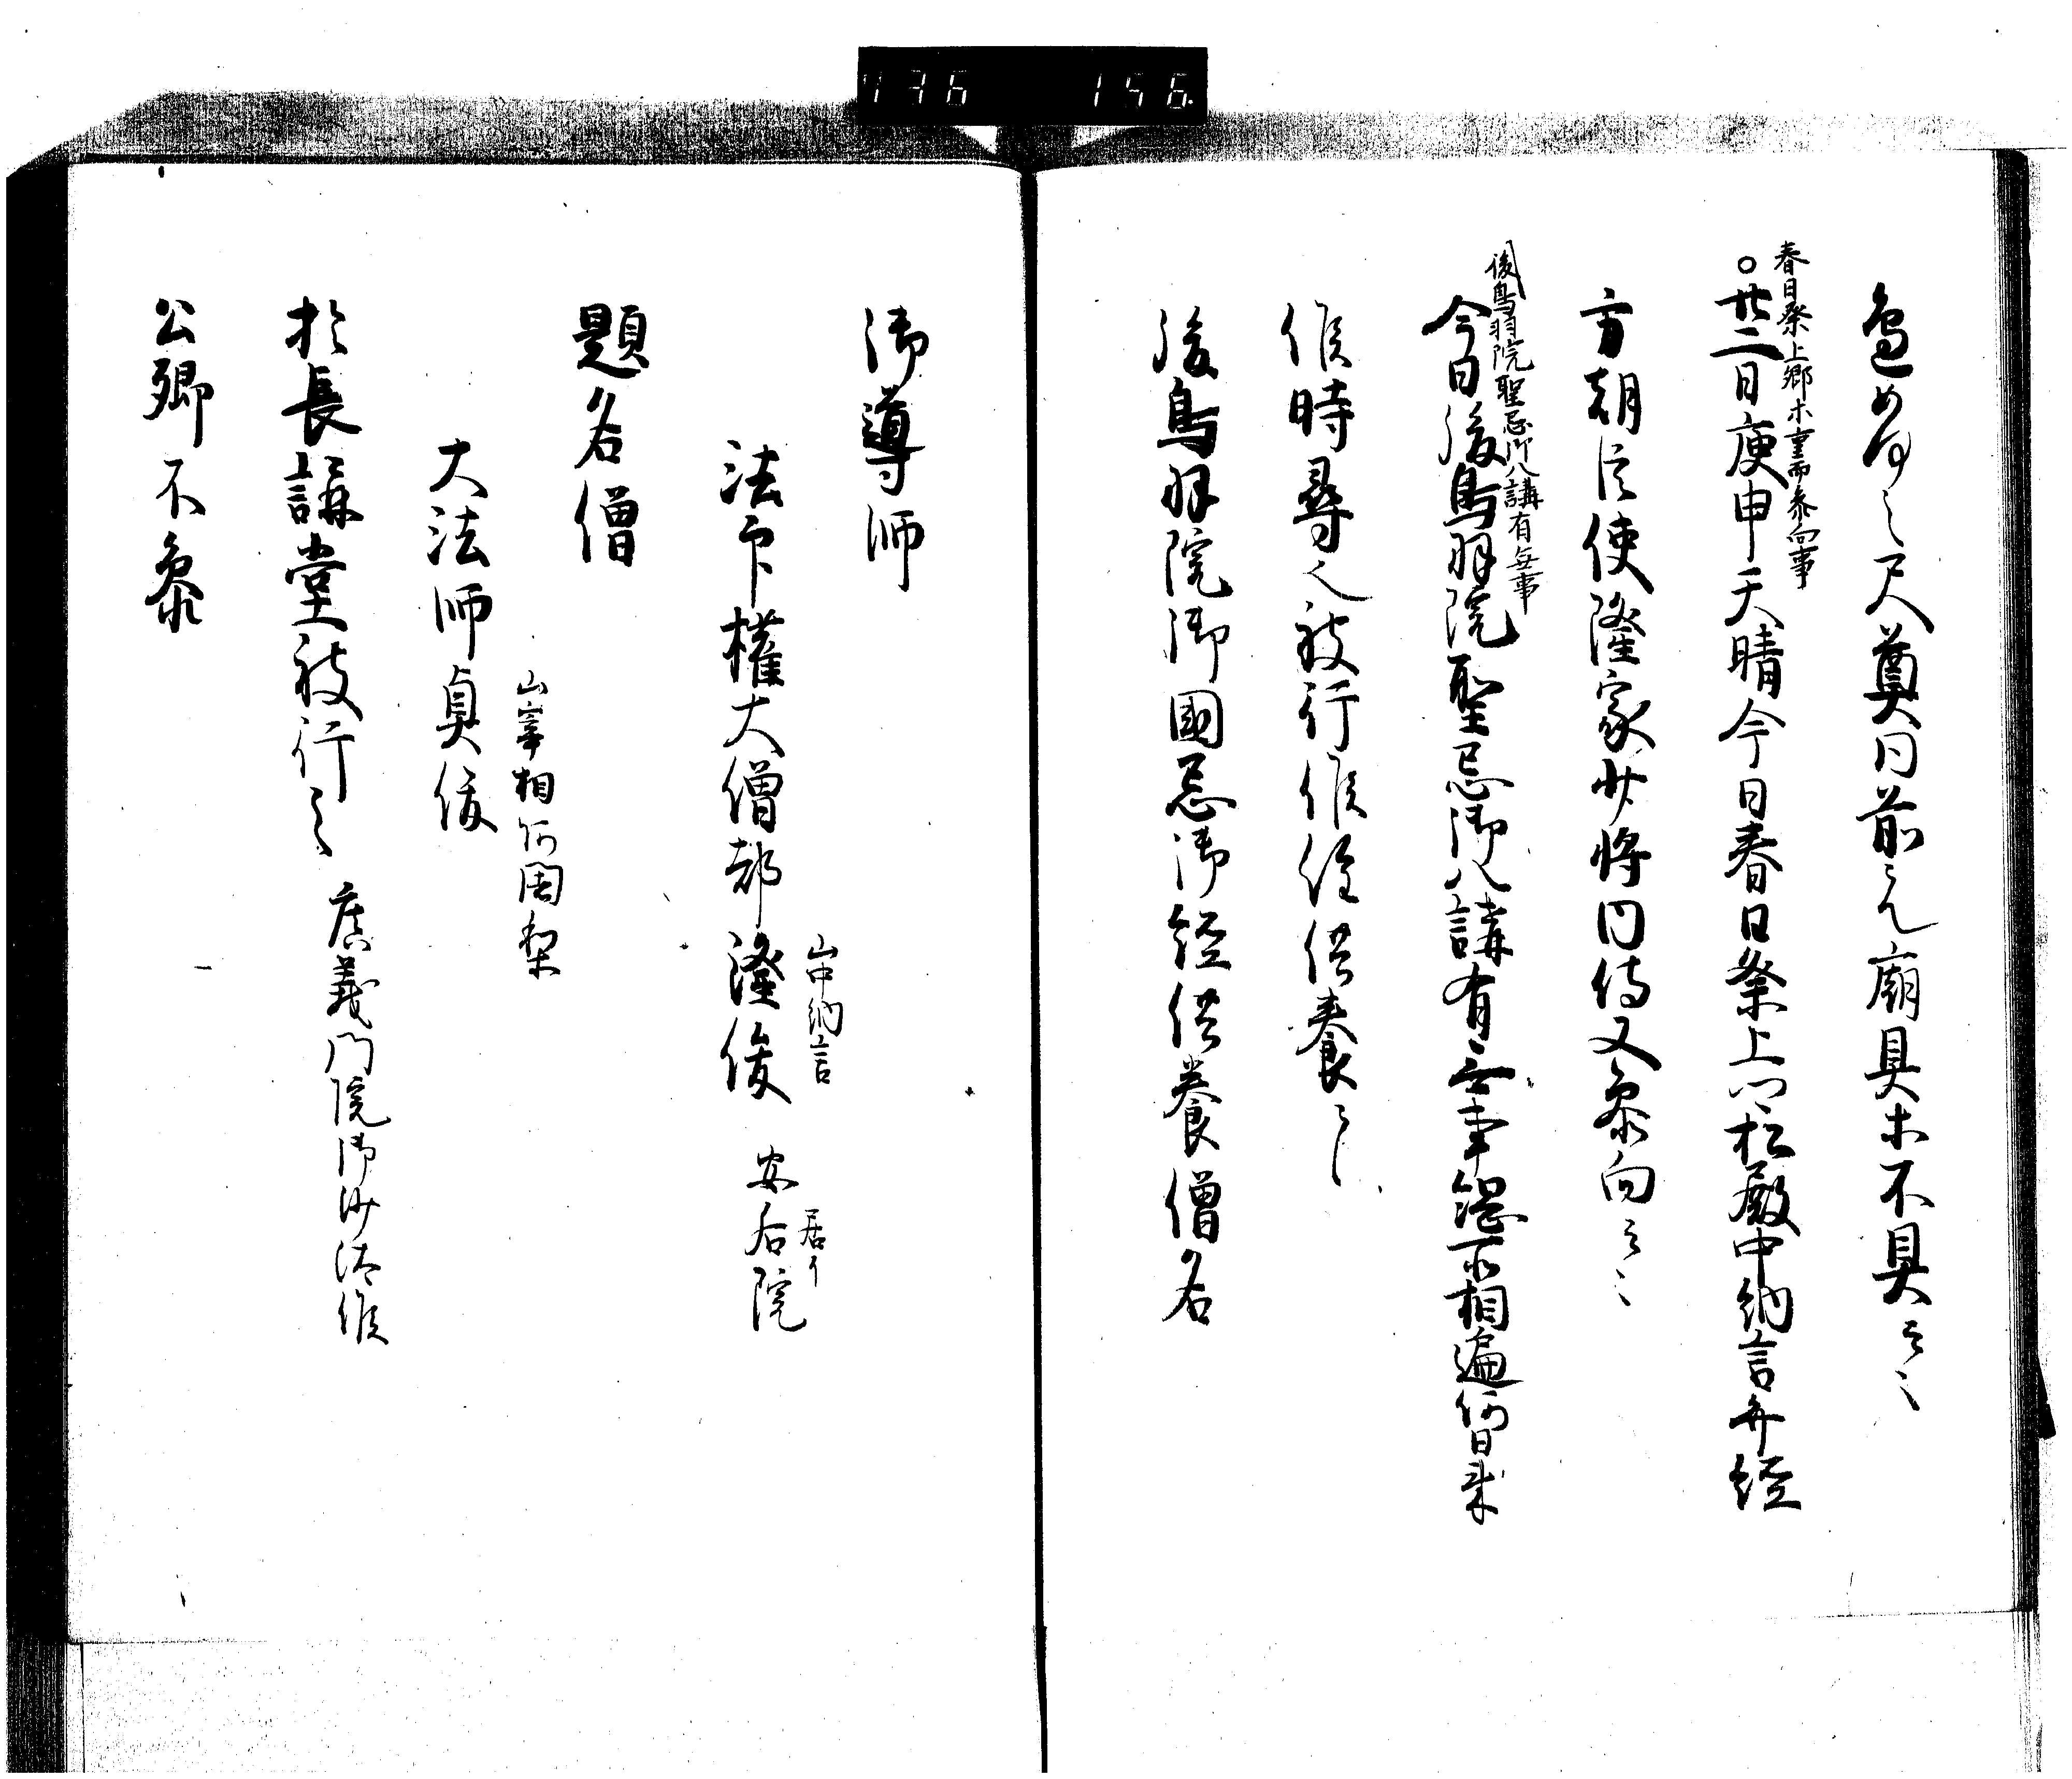 136 156
色如何云々尺奠同前之 廟具未不具云々
春日祭上卿木重而参向事
○廿二日庚申天晴今日春日祭上卿松殿中納言弁経
方朝臣使隆家少将内侍又参向云々
後鳥羽院聖忌御八講有無事
今日後鳥羽院聖忌御八講有無事 不相 何日来
候時尋人被行候経供養云々
後鳥羽院御国忌御経供養僧名
御導師
山中納言 居イ
法印権大僧都隆俊 安居院
題名僧
山宰相阿闍梨
大法師貞俊
於長講堂被行之 広義門院御沙汰候
公卿不参